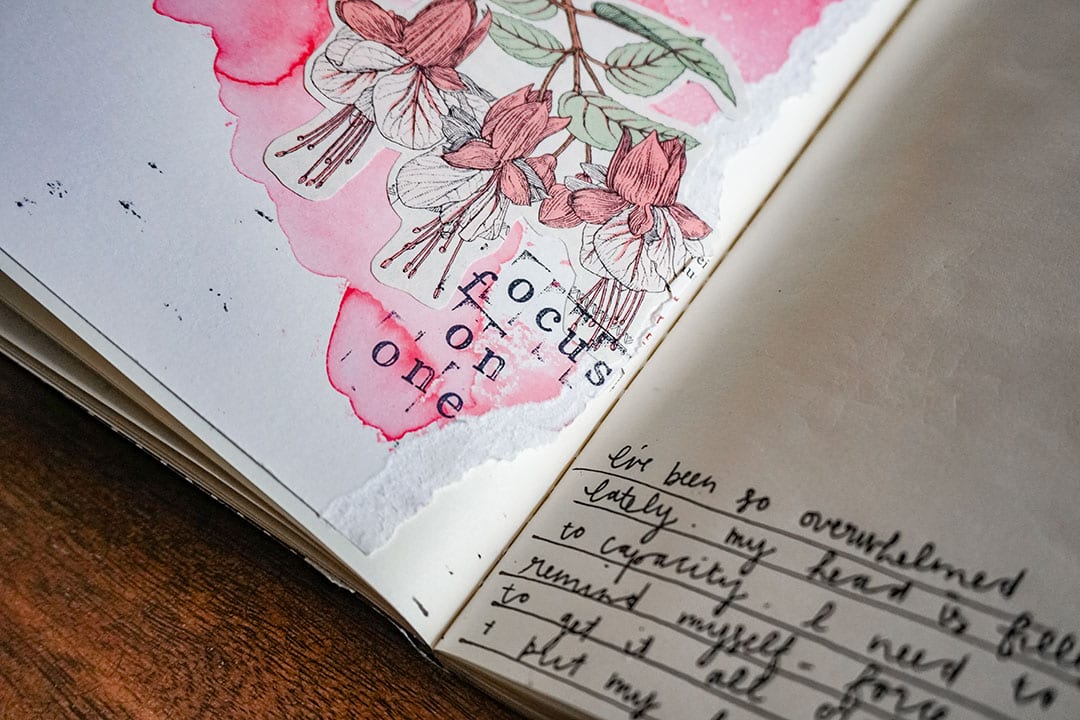 focus
on
one
I've been so overwhelmed
lately. my head is
to capacity. I need to
remind myself-
to get it all
+ put my